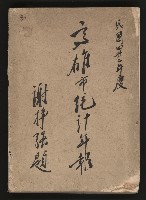 民國四十二年度
高雄市統計年報
謝掙強題